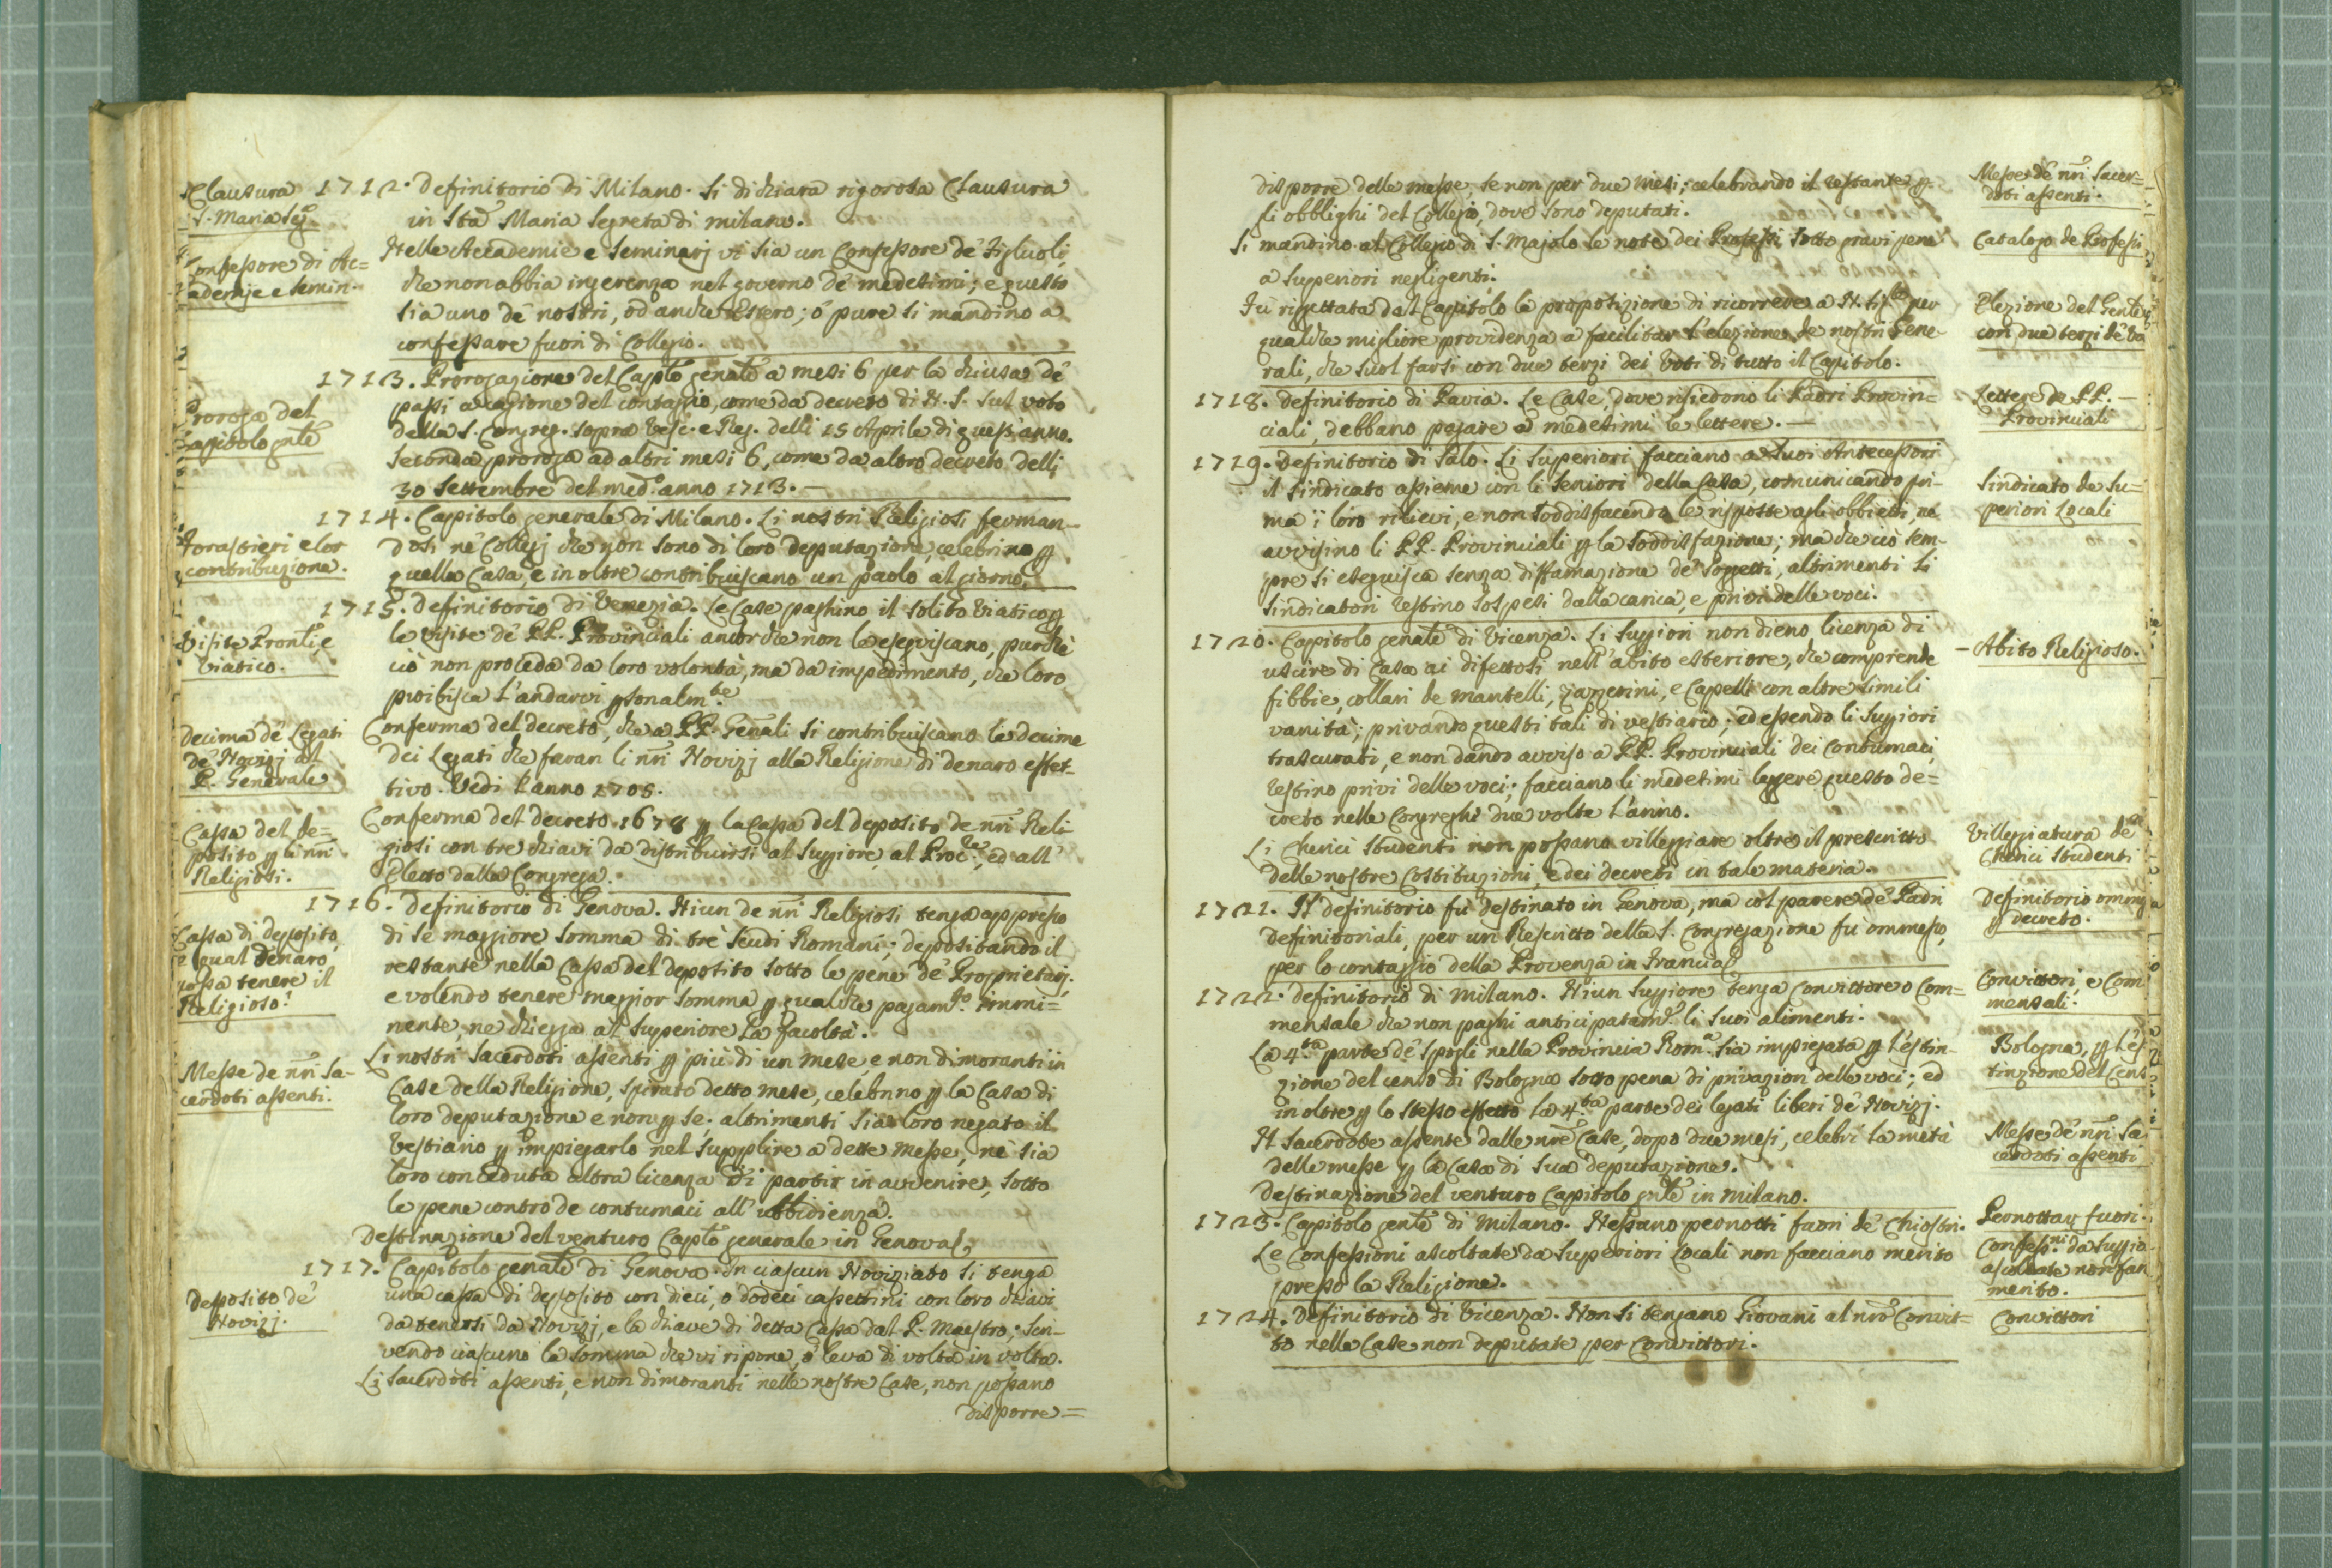 Clausura
S. Maria Seg.
1712. Definitorio di Milano. Si dichiara rigorosa Clausura
in Sta Maria Segreta di milano.
Confessore di Ac=
ademie e Semin.
Nelle Accademie e Seminarj vi sia un Confessore de' Figliuoli
che non abbia ingerenza nel governo de' medesimi; e questo
sia uno de' nostri, od anche estero; ó pure si mandino a
confessare fuori di Collegio.
Proroga del
Capitolo gnle
1713. Prorogazione del Caplo genale a mesi 6 per la chiusa de'
passi a cagione del contaggio, come da decreto di N. S. sul voto
della S. Congreg. sopra Vesc. e Reg. delli 15 Aprile di quest'anno.
Seconda proroga ad altri mesi 6, come da altro decreto delli
30 Settembre del med.o anno 1713. —
Forastieri e lor
contribuzione.
1714. Capitolo generale di Milano. Li nostri Religiosi ferman-
dosi ne' Collegj che non sono di loro deputazione, celebrino p
quella Casa, e in oltre contribuiscano un paolo al giorno.
Visite Pronli e
viatico.
1715. Definitorio di Venezia. Le Case paghino il solito Viatico p
le visite de' PP. Provinciali ancorche non le eseguiscano, purchè
ciò non proceda da loro volontà, ma da impedimento, che loro
proibisca l'andarvi psonalm.te
Decima de' Legati
de' Novizj al
P. Generale
Conferma del decreto, che a PP. Genali si contribuiscano le decime
dei Legati che faran li nri Novizj alla Religione di denaro effet-
tivo. Vedi l'anno 1705.
Cassa del de=
posito p li nri
Religiosi.
Conferma del decreto 1678 p la Cassa del deposito de nri Reli
giosi con tre chiavi da distribuirsi al Suppiore, al Proc.re, ed all'
Eletto dalla Congrega.
Cassa di deposito,
e qual denaro
possa tenere il
Religioso?
1716. Definitorio di Genova. Niun de nri Religiosi tenga appresso
di se maggiore somma di trè Scudi Romani; depositando il
restante nella Cassa del deposito sotto le pene de' Proprietarj.
e volendo tenere maggior somma p qualche pagam.to immi=
nente, ne chiegga al Superiore la facoltà.
Messe de nri Sa-
cerdoti assenti.
Li nostri Sacerdoti assenti p più di un mese, e non dimoranti in
Case della Religione, spirato detto mese, celebrino p la Casa di
loro deputazione e non p se. altrimenti sia loro negato il
Vestiario p impiegarlo nel supplire a dette messe, nè sia
loro conceduta altra licenza di partir in avvenire, sotto
le pene contro de contumaci all' ubbidienza.
Destinazione del venturo Caplo generale in Genova.
Deposito de'
Novizj.
1717. Capitolo genale di Genova. In ciascun Noviziato si tenga
una cassa di deposito con dieci, o dodeci cassettini con loro chiavi
da tenersi da Novizj, e la chiave di detta Cassa dal P. Maestro; Scri-
vendo ciascuno la somma che vi ripone, ó leva di volta in volta.
Li Sacerdoti assenti, e non dimoranti nelle nostre Case, non possano
disporre=
disporre delle messe, se non per due mesi; celebrando il restante p
gli obblighi del Collegio, dove sono deputati.
Messe de' nri Sacer=
doti assenti.
Si mandino al Collegio di S. Majolo le note dei Professi sotto gravi pene
a Superiori negligenti.
Catalogo de Professi
Fu rigettata dal Capitolo la proposizione di ricorrere a N. Sig.re per
qualche migliore providenza a facilitar l'elezione de nostri Gene-
rali, che suol farsi con due terzi dei Voti di tutto il Capitolo.
Elezione del Genle
con due terzi de' Vo
1718. Definitorio di Pavia. Le Case, dove risiedono li Padri Provin=
ciali, debbano pagare a medesimi le lettere. —
Lettere de PP. —
Provinciali
1719. Definitorio di Salò. Li Superiori facciano a suoi Antecessori
il Sindicato assieme con li Seniori della Casa, comunicando pri-
ma i loro rilievi, e non soddisfacendo le risposte agli obbietti, ne
avvisino li PP. Provinciali p la soddisfazione; ma che ciò sem-
pre si eseguisca senza diffamazione de' Soggetti, altrimenti li
Sindicatori restino sospesi dalla carica, e privi delle voci.
Sindicato de Su=
periori Locali
1720. Capitolo genale di Vicenza. Li Suppiori non dieno licenza di
uscire di Casa ai difettosi nell'abito esteriore, che comprende
fibbie, collari de mantelli, zazzerini, e Capelli con altre simili
vanità; privando questi tali di vestiario; ed essendo li Suppiori
trascurati, e non dando avviso a PP. Provinciali dei Contumaci,
restino privi delle voci; facciano li medesimi leggere questo de=
creto nelle Congreghe due volte l'anno.
— Abito Religioso.
Li Cherici Studenti non possano villeggiare oltre il prescritto
delle nostre Costituzioni, e dei decreti in tale materia.
Villeggiatura de'
Cherici Studenti
1721. Il definitorio fù destinato in Genova, ma col parere de' Padri
Definitoriali, per un Rescritto della S. Congregazione fù ommesso,
per lo contaggio della Provenza in Francia.
Definitorio ommesso
p decreto.
1722. Definitorio di Milano. Niun Suppiore tenga Convittore o Com=
mensale che non paghi anticipatam.te li suoi alimenti.
Convittori, e Com
mensali.
La 4.ta parte de' Spogli nella Provincia Rom.a sia impiegata p l'estin-
zione del censo di Bologna sotto pena di privazion delle voci; ed
in oltre p lo stesso effetto la 4.ta parte dei legati liberi de' Novizj.
Bologna, p l'es
tinzione del Cens
Il Sacerdote assente dalle nre Case, dopo due mesi, celebri la metà
delle messe p la Casa di sua deputazione.
Messe de' nri Sa
cerdoti assenti
Destinazione del venturo Capitolo gnle in Milano.
1723. Capitolo genle di Milano. Nessuno pernotti fuori de' Chiostri.
Pernottar fuori.
Le Confessioni ascoltate da Superiori Locali non facciano merito
presso la Religione.
Confess.ni da Suppio
ascoltate non fan
merito.
1724. Definitorio di Vicenza. Non si tengano Giovani al nro Convit=
to nelle Case non deputate per Convittori.
Convittori